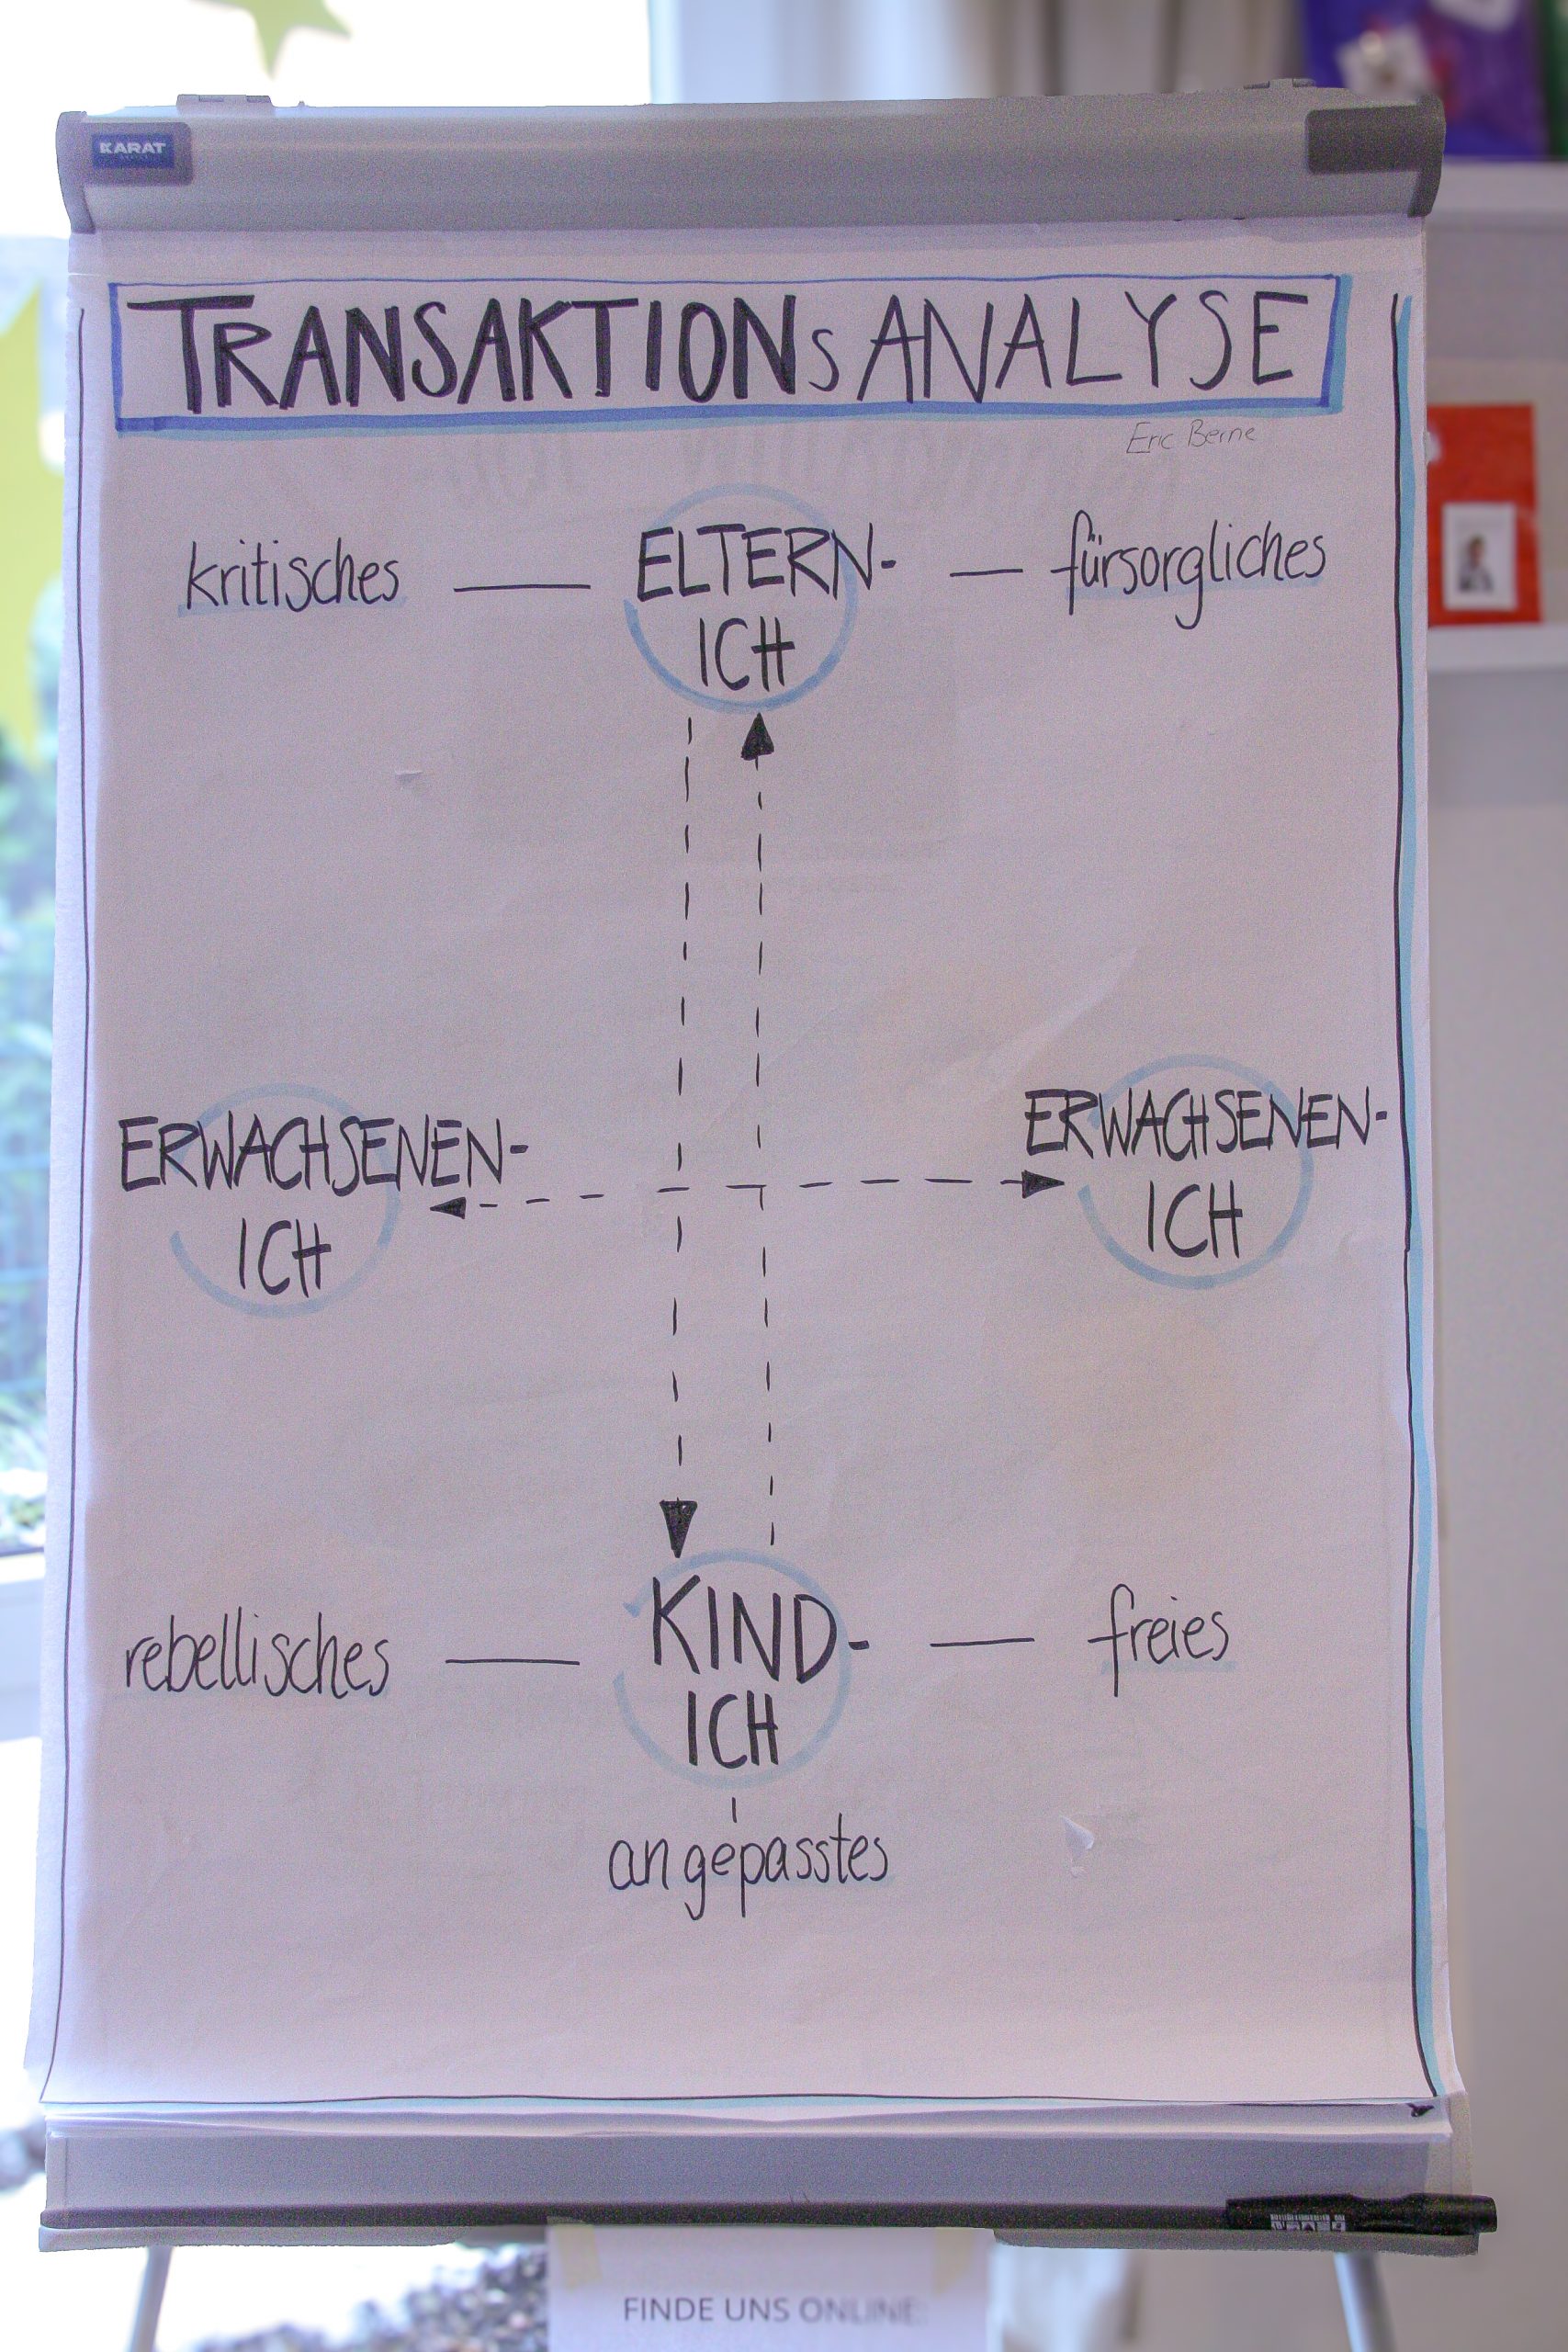 KARAT
TRANSAKTIONSANALYSE
Eric Berne
kritisches — ELTERN- — fürsorgliches
ICH
ERWACHSENEN-
ICH
ERWACHSENEN-
ICH
rebellisches — KIND- — freies
ICH
angepasstes
FINDE UNS ONLINE